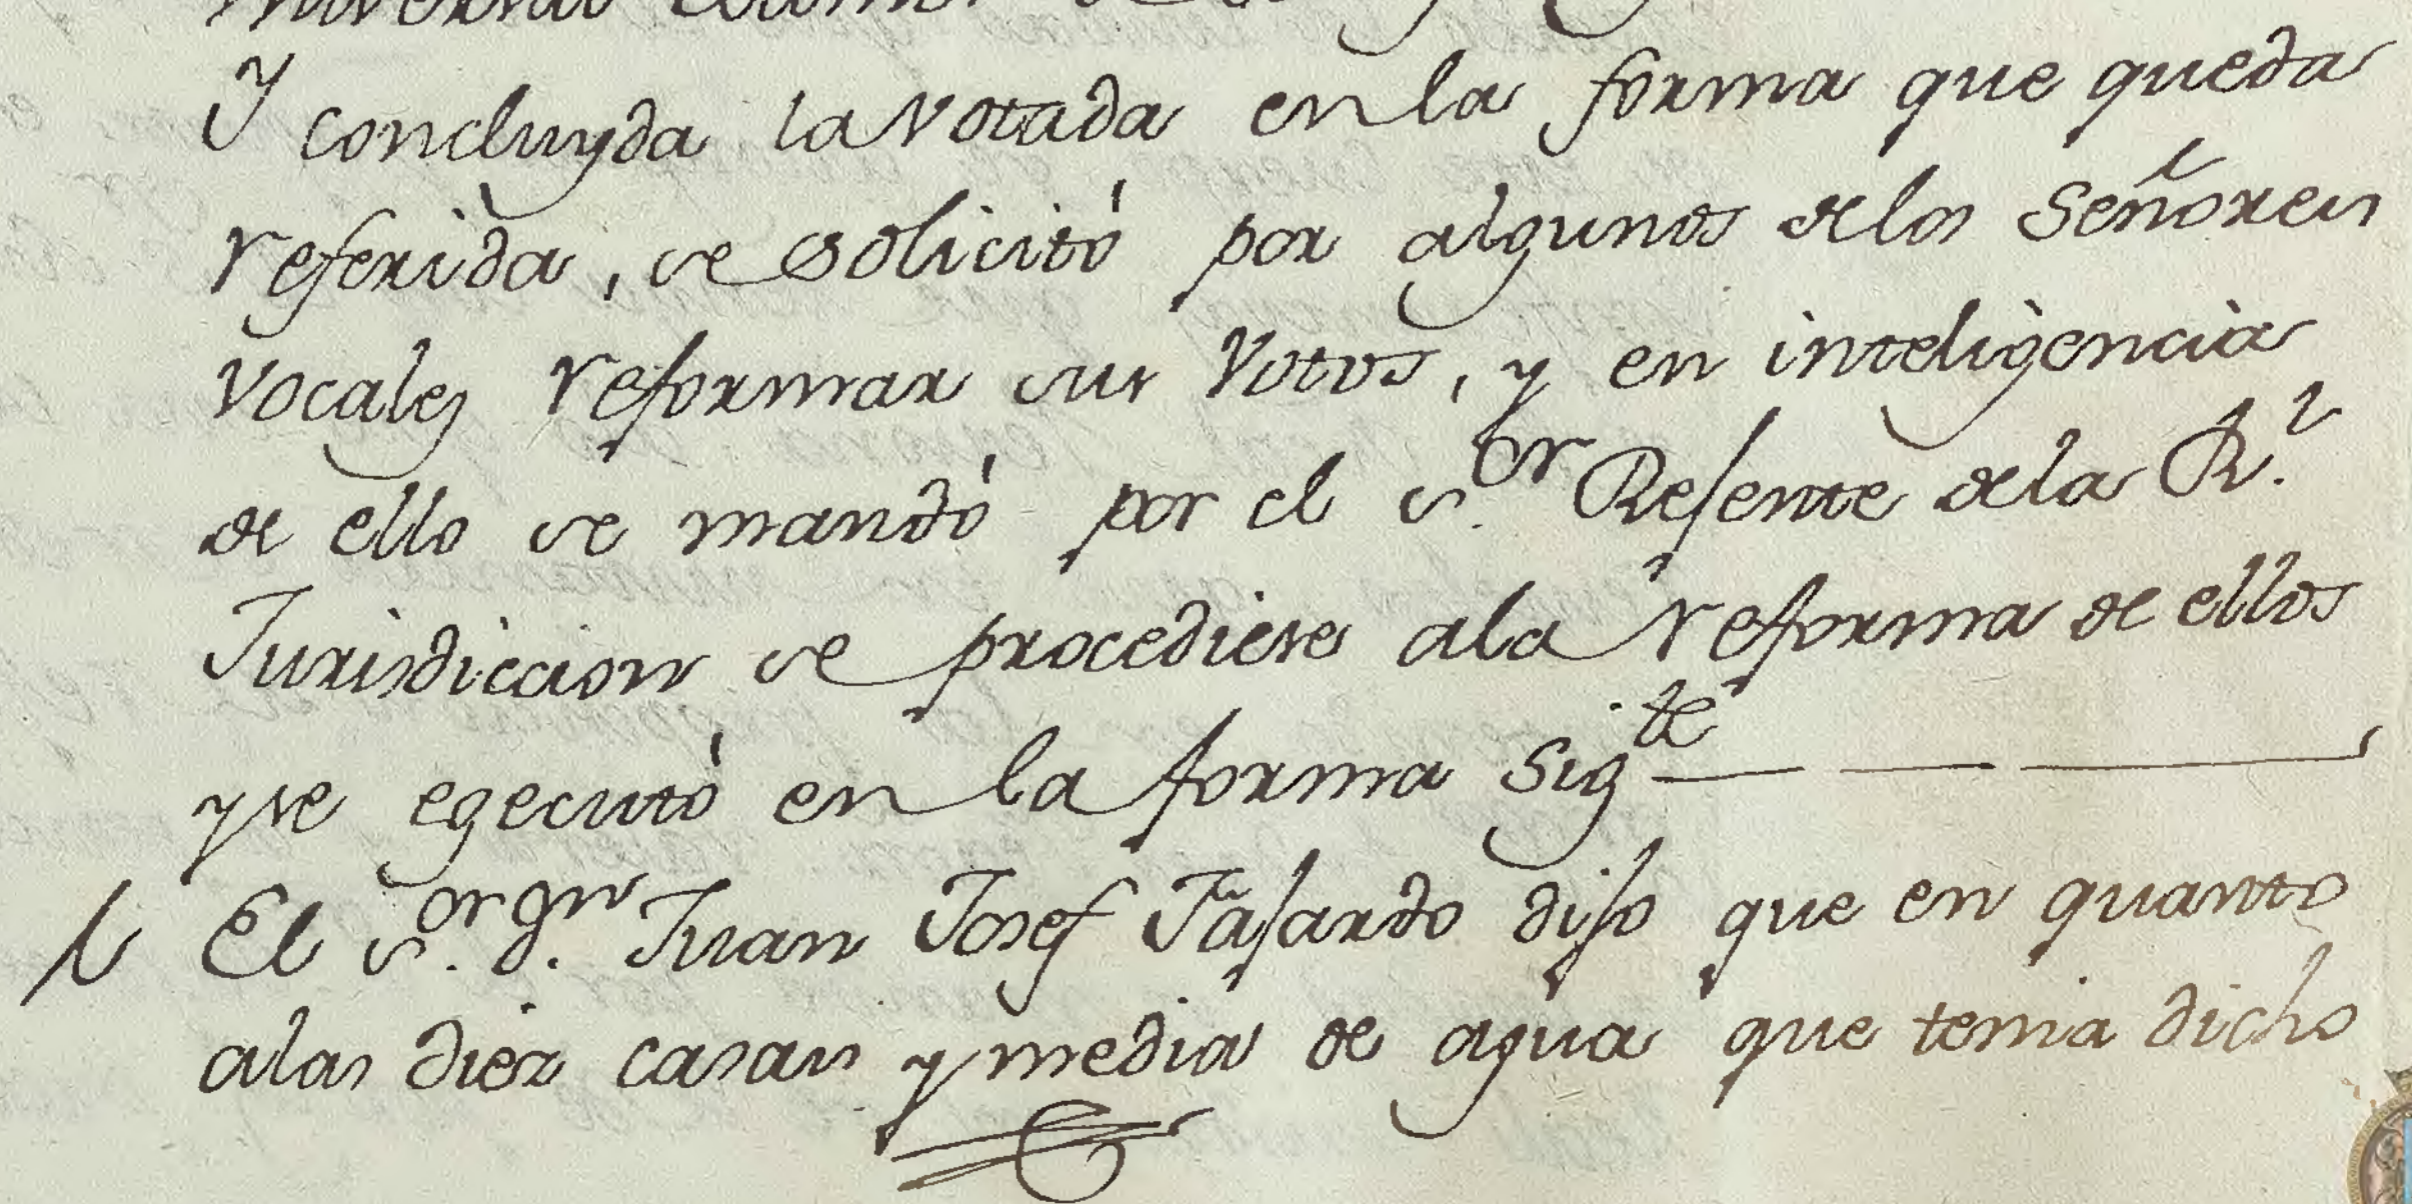 Y concluyda la votada en la forma que queda
referida, se solicitó por algunos de los Señores
Vocales reformar sus Votos, y en inteligencia
de ello se mandó por el s.or Regente de la R.l
Jurisdiccion se procediese a la reforma de ellos
y se egecutó en la forma Sig.te
El s.or d.n Juan Josef Fajardo dijo que en quanto
a las diez casas y media de agua que tenia dicho